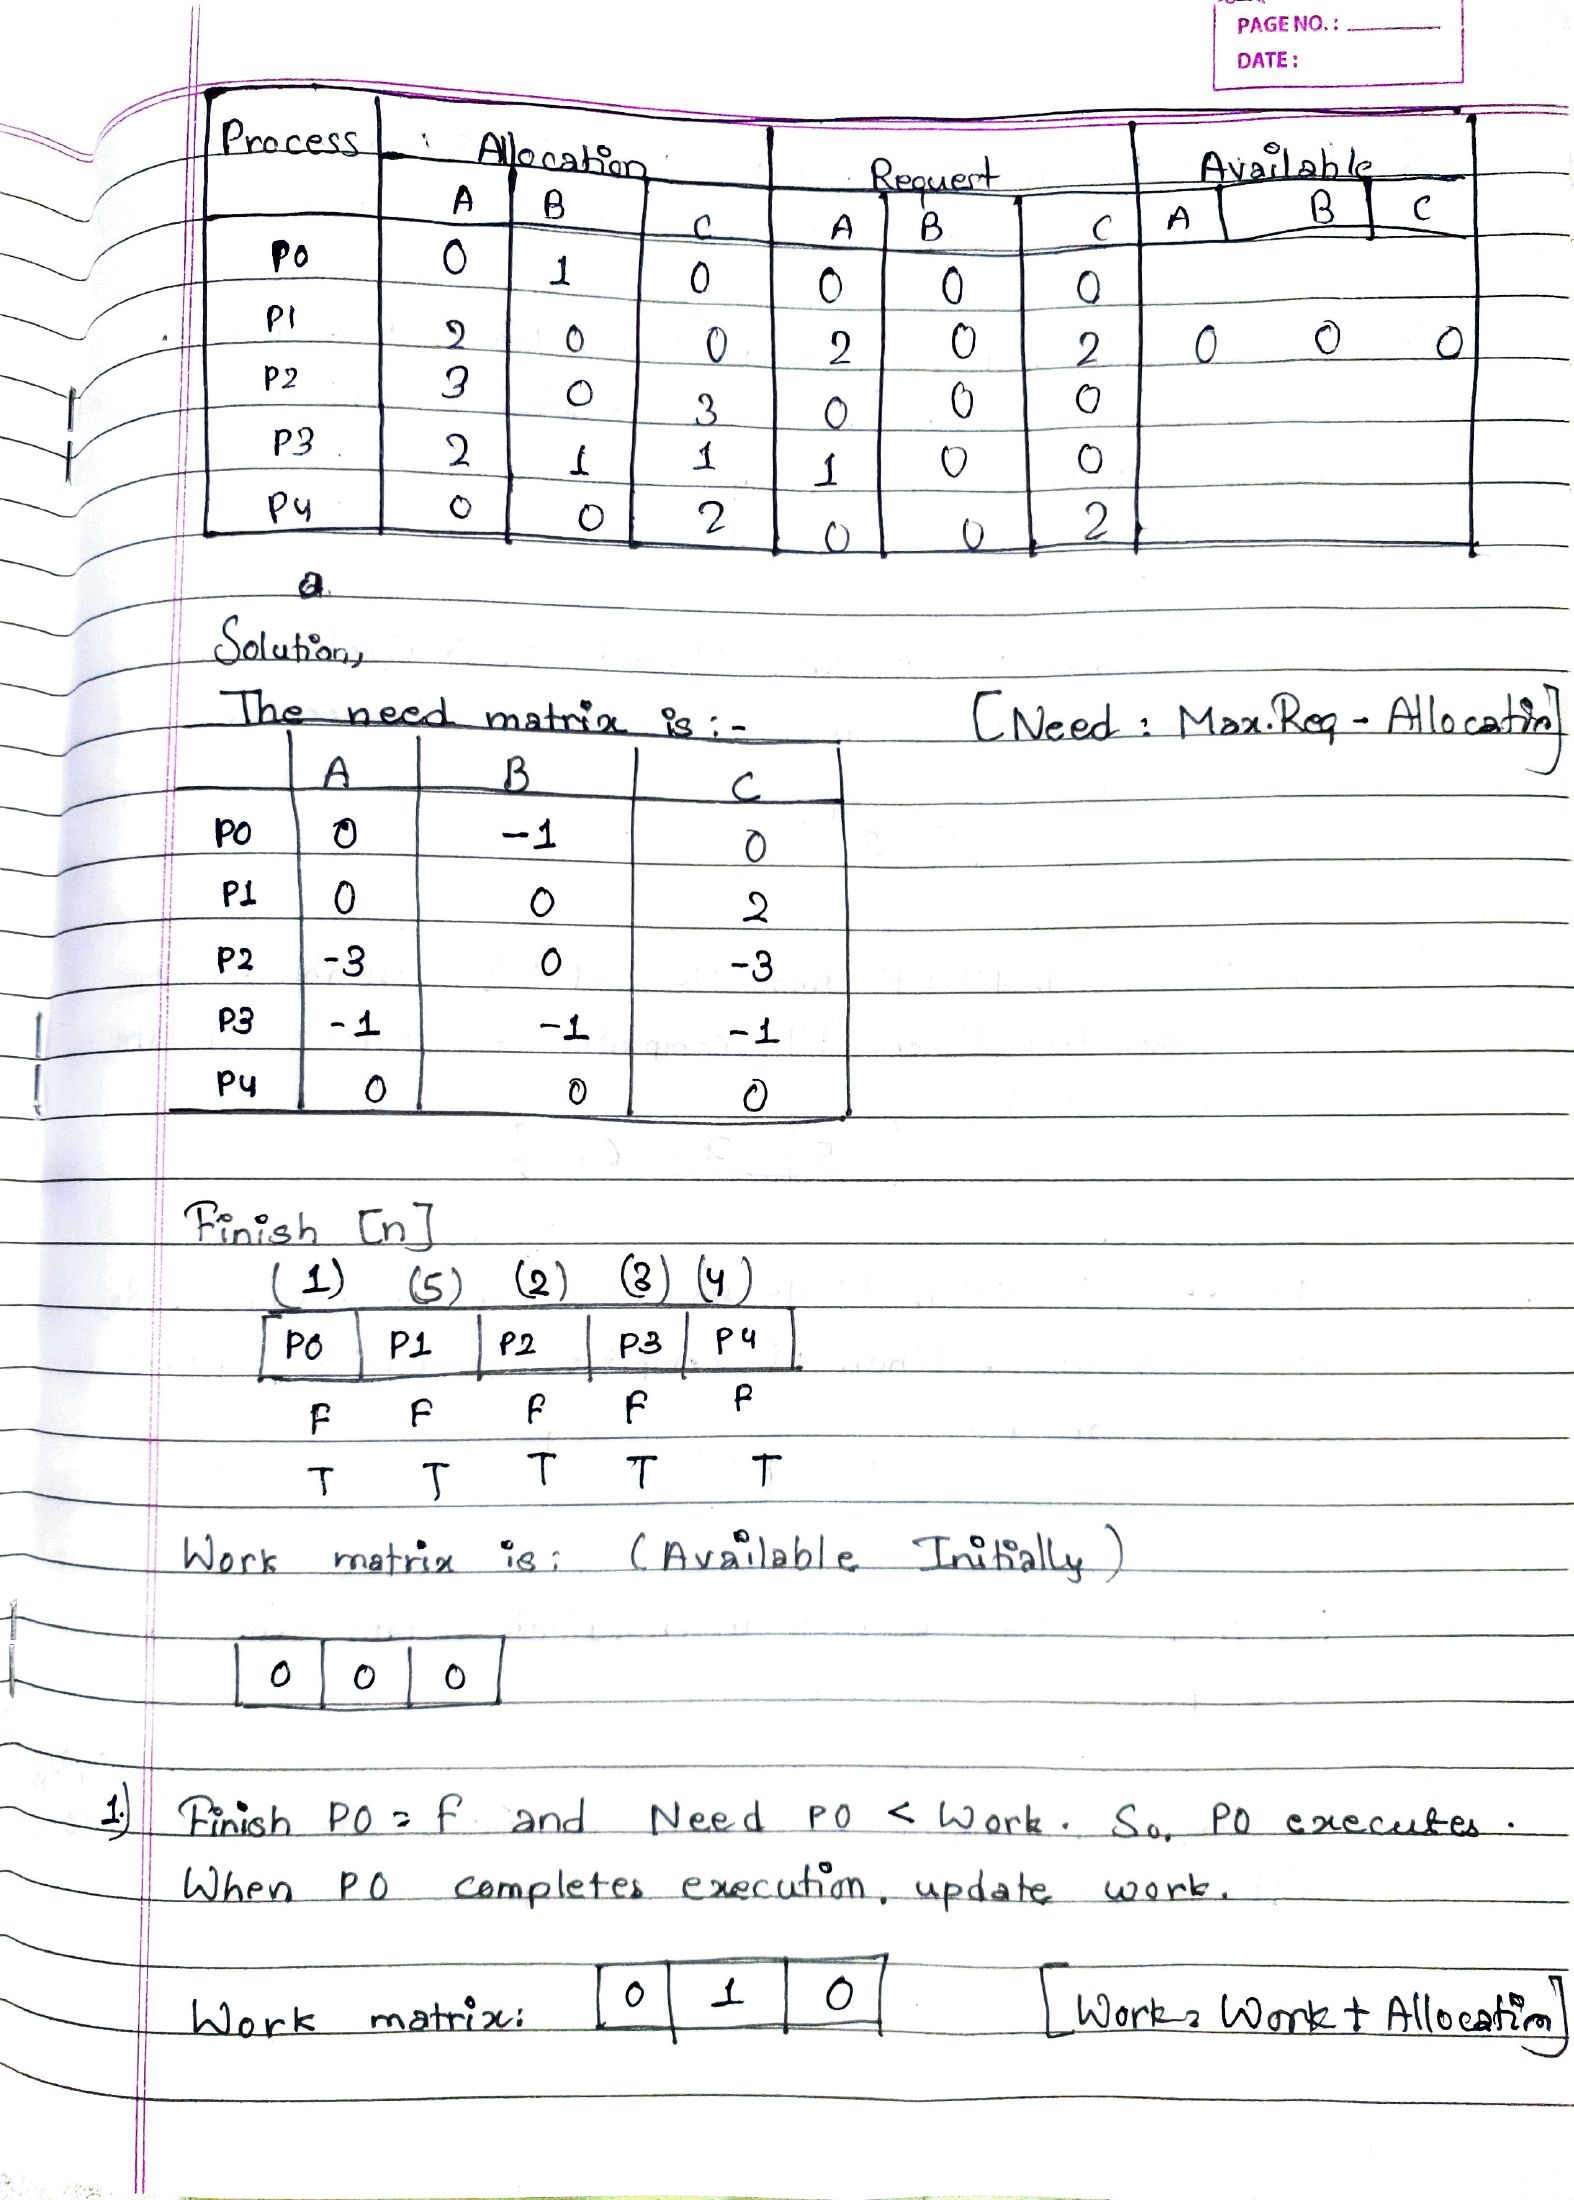 PAGE NO.:
DATE:
Process Allocation Request Available
A B C A B C A B C
P0 0 1 0 0 0 0
P1 2 0 0 2 0 2 0 0 0
P2 3 0 3 0 0 0
P3 2 1 1 1 0 0
P4 0 0 2 0 0 2
a.
Solution,
The need matrix is :- [Need : Max.Req - Allocatin]
A B C
P0 0 -1 0
P1 0 0 2
P2 -3 0 -3
P3 -1 -1 -1
P4 0 0 0
Finish [n]
(1) (5) (2) (3) (4)
P0 P1 P2 P3 P4
F F F F F
T T T T T
Work matrix is: (Available Initially)
0 0 0
1.) Finish P0 = F and Need P0 < Work. So, P0 executes.
When P0 completes execution, update work.
Work matrix: 0 1 0 [Work = Work + Allocatin]